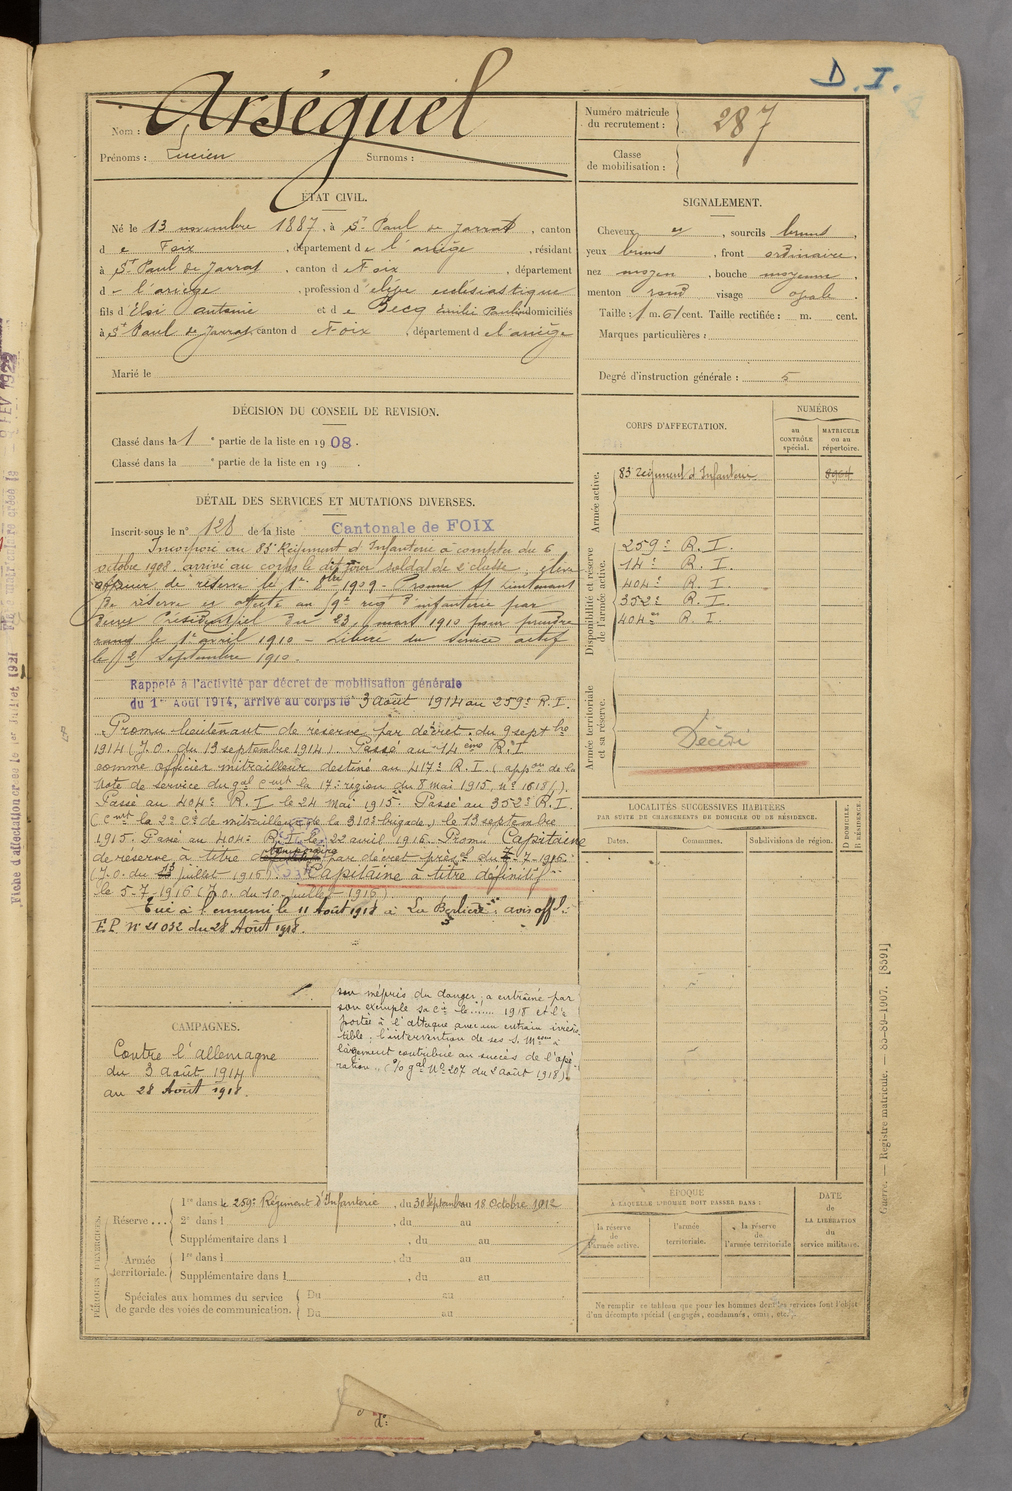 D. I.
Nom : Arséguel
Prénoms : Lucien Surnoms :
Numéro matricule du recrutement : 287
Classe de mobilisation :
ÉTAT CIVIL.
Né le 13 novembre 1887, à St Paul de Jarrat, canton
de Foix, département de l'ariège, résidant
à St Paul de Jarrat, canton de Foix, département
d l'ariège, profession d'élève ecclésiastique
fils d'Eloi antoine et de Becq Emilie Pauline domiciliés
à St Paul de Jarrat canton de Foix, département de l'ariège
Marié le
SIGNALEMENT.
Cheveux et, sourcils bruns,
yeux bruns, front ordinaire.
nez moyen, bouche moyenne,
menton rond visage ovale.
Taille : 1 m. 61 cent. Taille rectifiée : m. cent.
Marques particulières :
Degré d'instruction générale : 5
DÉCISION DU CONSEIL DE REVISION.
Classé dans la 1e partie de la liste en 1908.
Classé dans la e partie de la liste en 19 .
DÉTAIL DES SERVICES ET MUTATIONS DIVERSES.
Inscrit sous le n° 128 de la liste Cantonale de FOIX
Incorporé au 83e Régiment d'Infanterie à compter du 6
octobre 1908. arrivé au corps le dit jour soldat de 2e classe, élève
officier de réserve le 1er 8bre 1909 - Promu st lieutenant
de réserve et affecté au 9e regt d'infanterie par
Décret Présidentiel du 23 mars 1910 pour prendre
rang le 1er avril 1910 - Libéré du service actif
le 2 Septembre 1910.
Rappelé à l'activité par décret de mobilisation générale
du 1er Août 1914, arrivé au corps le 3 août 1914 au 259e R.I.
Promu lieutenant de réserve par décret du 9 septbre
1914 (J.O. du 13 septembre 1914). Passé au 14ème R.I
comme officier mitrailleur destiné au 417e R.I. (appon de la
Note de service du gal Cmt la 17e région du 8 mai 1915, n° 1618/).
Passé au 404e R.I le 24 mai 1915. Passé au 352e R.I.
(Cmt la 2e Cie de mitrailleuses de la 310e brigade) le 13 septembre
1915. Passé au 404e R.I. le 22 avril 1916. Promu Capitaine
de réserve à titre temporaire par décret présel du 7-7-1916.
(J.O. du 13 juillet 1916). Capitaine à titre définitif
le 5-7-1916 (J.O. du 10 juillet 1916).
Tué à l'ennemi le 11 Août 1918 à La Berlière, avis offl.
F.P. N° 21032 du 28 Août 1918.
CORPS D'AFFECTATION.
NUMÉROS
au CONTRÔLE spécial.
MATRICULE ou au répertoire.
Armée active.
83e régiment d'Infanterie
Disponibilité et réserve de l'armée active.
259e R.I.
14e R.I.
404e R.I.
352e R.I.
404e R.I.
Armée territoriale et sa réserve.
Décédé
LOCALITÉS SUCCESSIVES HABITÉES
PAR SUITE DE CHANGEMENTS DE DOMICILE OU DE RÉSIDENCE.
Dates.
Communes.
Subdivisions de région.
D DOMICILE.
R RÉSIDENCE.
CAMPAGNES.
Contre l'allemagne
du 3 août 1914
au 28 Août 1918.
son mépris du danger, a entraîné par
son exemple sa Cie le ....... 1918 et l'a
portée à l'attaque avec un entrain irrésis-
tible ; l'intervention de ses S. Mson a
largement contribué au succès de l'opé-
ration " (O/o gal N° 207 du 2 août 1918).
PÉRIODES D'EXERCICES.
Réserve ...
1re dans le 259e Régiment d'Infanterie, du 30 Septembre au 18 Octobre 1912
2e dans l , du au
Supplémentaire dans l , du au
Armée territoriale.
1re dans l , du au
Supplémentaire dans l , du au
Spéciales aux hommes du service de garde des voies de communication.
Du au
Du au
ÉPOQUE
À LAQUELLE L'HOMME DOIT PASSER DANS :
la réserve de l'armée active.
l'armée territoriale.
la réserve de l'armée territoriale
DATE de LA LIBÉRATION du service militaire.
Ne remplir ce tableau que pour les hommes dont les services font l'objet
d'un décompte spécial (engagés, condamnés, omis, etc.).
Guerre. — Registre matricule. — 83-89-1907. [8391]